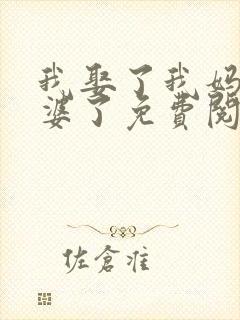 我娶了我妈
婆了免费阅
佐仓准